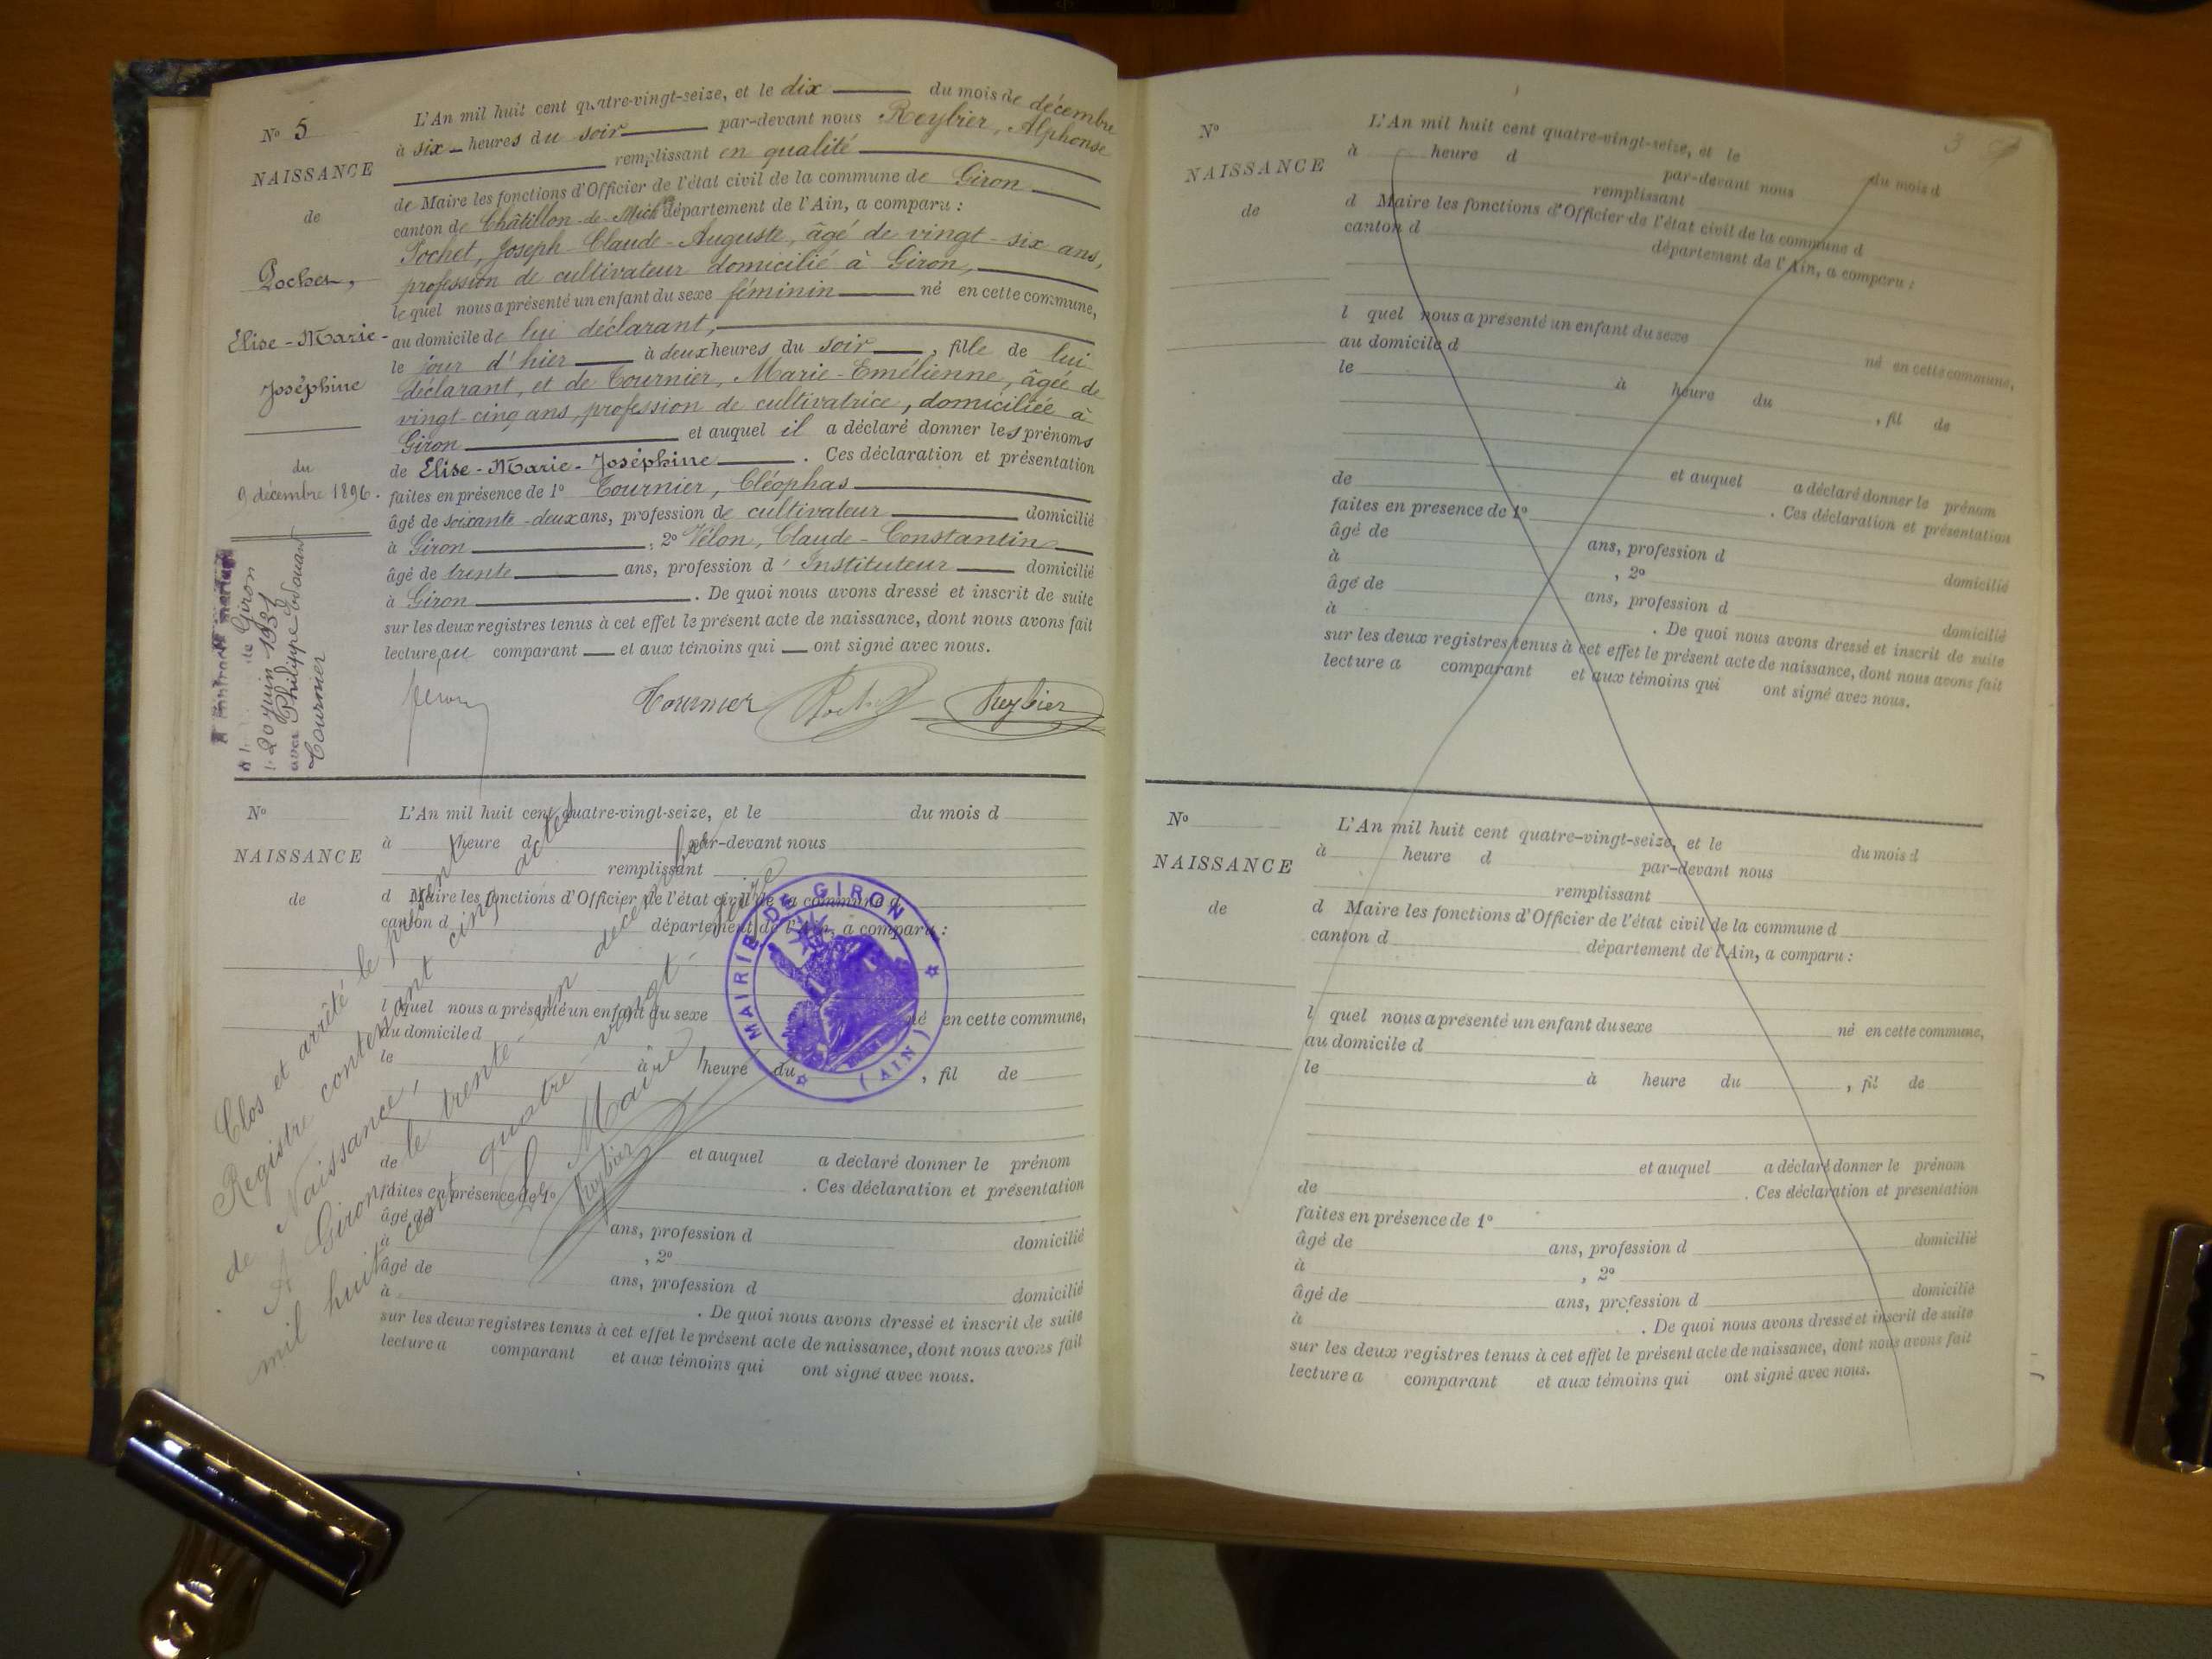 N° 5
NAISSANCE
de
Pochet,
Elise-Marie-
Joséphine
du
9 décembre 1896.
de Giron
20 juin 1931
avec Philippe Edouard
Tournier
L'An mil huit cent quatre-vingt-seize, et le dix du mois de décembre
à six heures du soir par-devant nous Reybier, Alphonse
remplissant en qualité
de Maire les fonctions d'Officier de l'état civil de la commune de Giron
canton de Châtillon-de-Mich département de l'Ain, a comparu :
Pochet, Joseph-Claude-Auguste, âgé de vingt-six ans,
profession de cultivateur domicilié à Giron,
lequel nous a présenté un enfant du sexe féminin né en cette commune,
au domicile de lui déclarant,
le jour d'hier à deux heures du soir, fille de lui
déclarant, et de Tournier, Marie-Emélienne, âgée de
vingt-cinq ans, profession de cultivatrice, domiciliée à
Giron et auquel il a déclaré donner les prénoms
de Elise-Marie-Joséphine. Ces déclaration et présentation
faites en présence de 1° Tournier, Cléophas
âgé de soixante-deux ans, profession de cultivateur domicilié
à Giron, 2° Vélon, Claude-Constantin
âgé de trente ans, profession d'Instituteur domicilié
à Giron. De quoi nous avons dressé et inscrit de suite
sur les deux registres tenus à cet effet le présent acte de naissance, dont nous avons fait
lecture, au comparant et aux témoins qui ont signé avec nous.
Tournier Reybier
N°
NAISSANCE
de
L'An mil huit cent quatre-vingt-seize, et le du mois d
à heure d par-devant nous
remplissant
d Maire les fonctions d'Officier de l'état civil de la commune d
canton d département de l'Ain, a comparu :
l quel nous a présenté un enfant du sexe né en cette commune,
au domicile d
le à heure du , fil de
et auquel a déclaré donner le prénom
de . Ces déclaration et présentation
faites en présence de 1°
âgé de ans, profession d domicilié
à , 2°
âgé de ans, profession d domicilié
à . De quoi nous avons dressé et inscrit de suite
sur les deux registres tenus à cet effet le présent acte de naissance, dont nous avons fait
lecture a comparant et aux témoins qui ont signé avec nous.
Clos et arrêté le présent
Registre contenant cinq actes
de Naissance,
A Giron, le trente-un décembre
mil huit cent quatre-vingt-seize
Le Maire
Reybier
MAIRIE DE GIRON
(AIN)
3
N°
NAISSANCE
de
L'An mil huit cent quatre-vingt-seize, et le du mois d
à heure d par-devant nous
remplissant
d Maire les fonctions d'Officier de l'état civil de la commune d
canton d département de l'Ain, a comparu :
l quel nous a présenté un enfant du sexe né en cette commune,
au domicile d
le à heure du , fil de
et auquel a déclaré donner le prénom
de . Ces déclaration et présentation
faites en presence de 1°
âgé de ans, profession d domicilié
à , 2°
âgé de ans, profession d domicilié
à . De quoi nous avons dressé et inscrit de suite
sur les deux registres tenus à cet effet le présent acte de naissance, dont nous avons fait
lecture a comparant et aux témoins qui ont signé avec nous.
N°
NAISSANCE
de
L'An mil huit cent quatre-vingt-seize, et le du mois d
à heure d par-devant nous
remplissant
d Maire les fonctions d'Officier de l'état civil de la commune d
canton d département de l'Ain, a comparu :
l quel nous a présenté un enfant du sexe né en cette commune,
au domicile d
le à heure du , fil de
et auquel a déclaré donner le prénom
de . Ces déclaration et présentation
faites en présence de 1°
âgé de ans, profession d domicilié
à , 2°
âgé de ans, profession d domicilié
à . De quoi nous avons dressé et inscrit de suite
sur les deux registres tenus à cet effet le présent acte de naissance, dont nous avons fait
lecture a comparant et aux témoins qui ont signé avec nous.